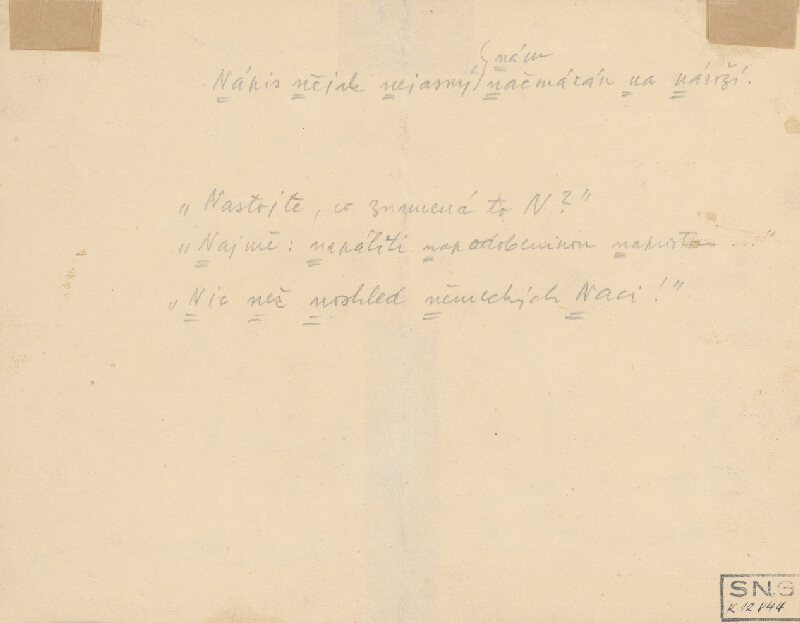 nám
Nápis nějak nejasný načmárán na nároží.
„Nastojte, co znamená to N?"
„Najmě: napáliti napodobeninou naprostou ..."
„Nic než noshled německých Naci!"
SNG
K 12844